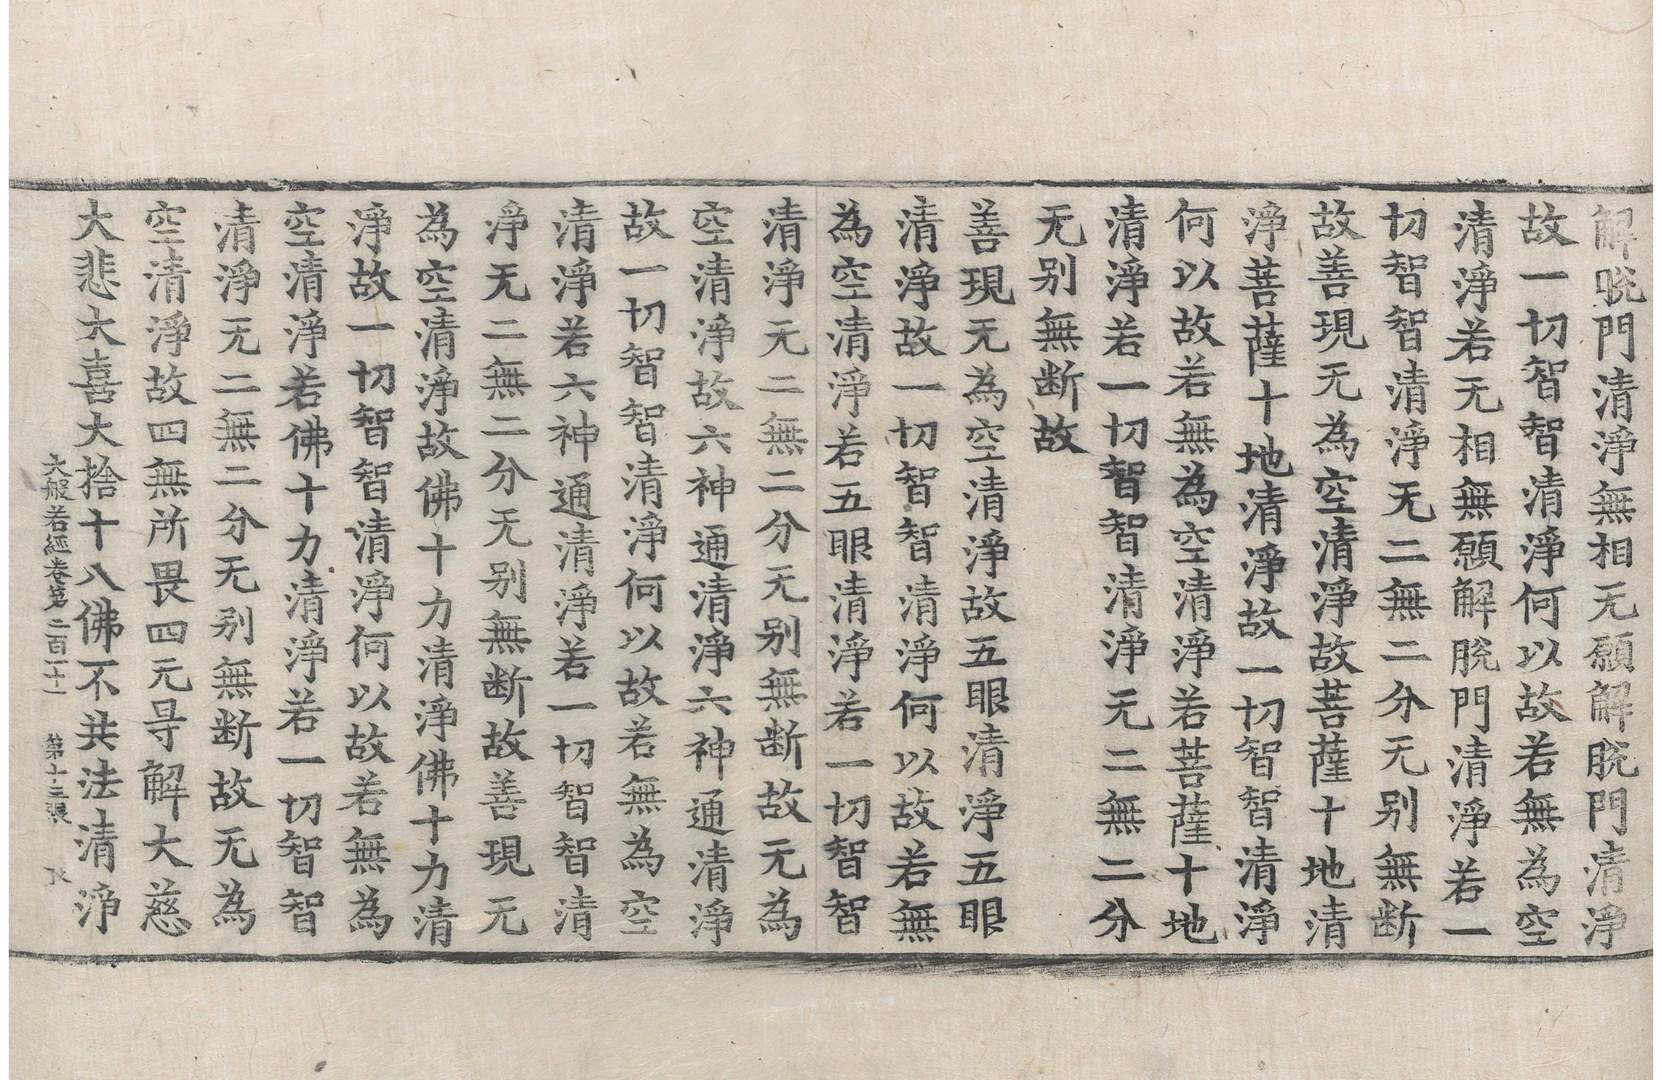 解脫門清淨無相无願解脫門清淨
故一切智智清淨何以故若無為空
清淨若无相無願解脫門清淨若一
切智智清淨无二無二分无别無断
故善現无為空清淨故菩薩十地清
淨菩薩十地清淨故一切智智清淨
何以故若無為空清淨若菩薩十地
清淨若一切智智清淨无二無二分
无别無断故
善現无為空清淨故五眼清淨五眼
清淨故一切智智清淨何以故若無
為空清淨若五眼清淨若一切智智
清淨无二無二分无别無断故无為
空清淨故六神通清淨六神通清淨
故一切智智清淨何以故若無為空
清淨若六神通清淨若一切智智清
淨无二無二分无别無断故善現无
為空清淨故佛十力清淨佛十力清
淨故一切智智清淨何以故若無為
空清淨若佛十力清淨若一切智智
清淨无二無二分无别無断故无為
空清淨故四無所畏四无㝵解大慈
大悲大喜大捨十八佛不共法清淨
大般若經卷第二百二十一 第十三張